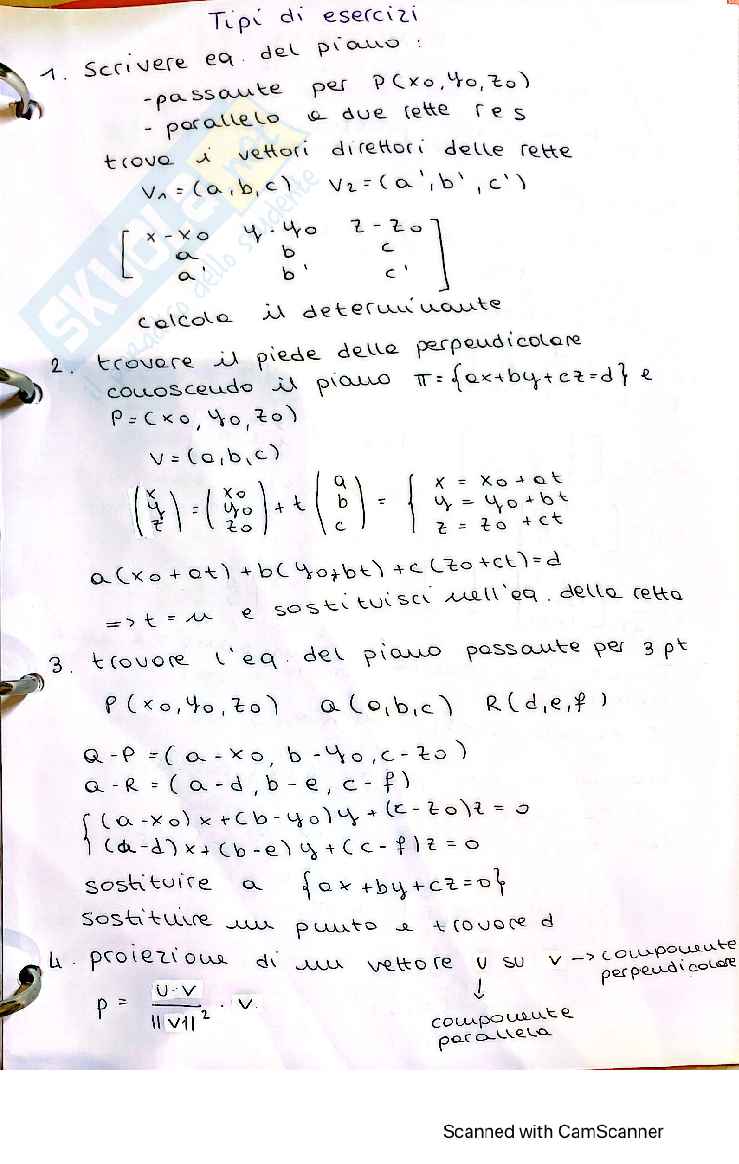 Tipi di esercizi
1. Scrivere eq. del piano :
- passante per P(x0, y0, z0)
- parallelo a due rette r e s
trova i vettori direttori delle rette
V1 = (a, b, c) V2 = (a', b', c')
[ x-x0 y-y0 z-z0 ]
a b c
a' b' c'
calcola il determinante
2. trovare il piede della perpendicolare
conoscendo il piano π = {ax+by+cz=d} e
P = (x0, y0, z0)
V = (a, b, c)
(x y z) = (x0 y0 z0) + t (a b c) = { x = x0 + at
y = y0 + bt
z = z0 + ct
a(x0 + at) + b(y0 + bt) + c(z0 + ct) = d
=> t = n e sostituisci nell'eq. della retta
3. trovare l'eq. del piano passante per 3 pt
P(x0, y0, z0) Q(a, b, c) R(d, e, f)
Q-P = (a-x0, b-y0, c-z0)
Q-R = (a-d, b-e, c-f)
{ (a-x0)x + (b-y0)y + (c-z0)z = 0
(a-d)x + (b-e)y + (c-f)z = 0
sostituire a {ax+by+cz=0}
sostituire un punto e trovare d
4. proiezione di un vettore u su v -> componente
perpendicolare
↓
componente
parallela
p = U·V / ||V1||² · V
SKUOLA.net
il paradiso dello studente
Scanned with CamScanner